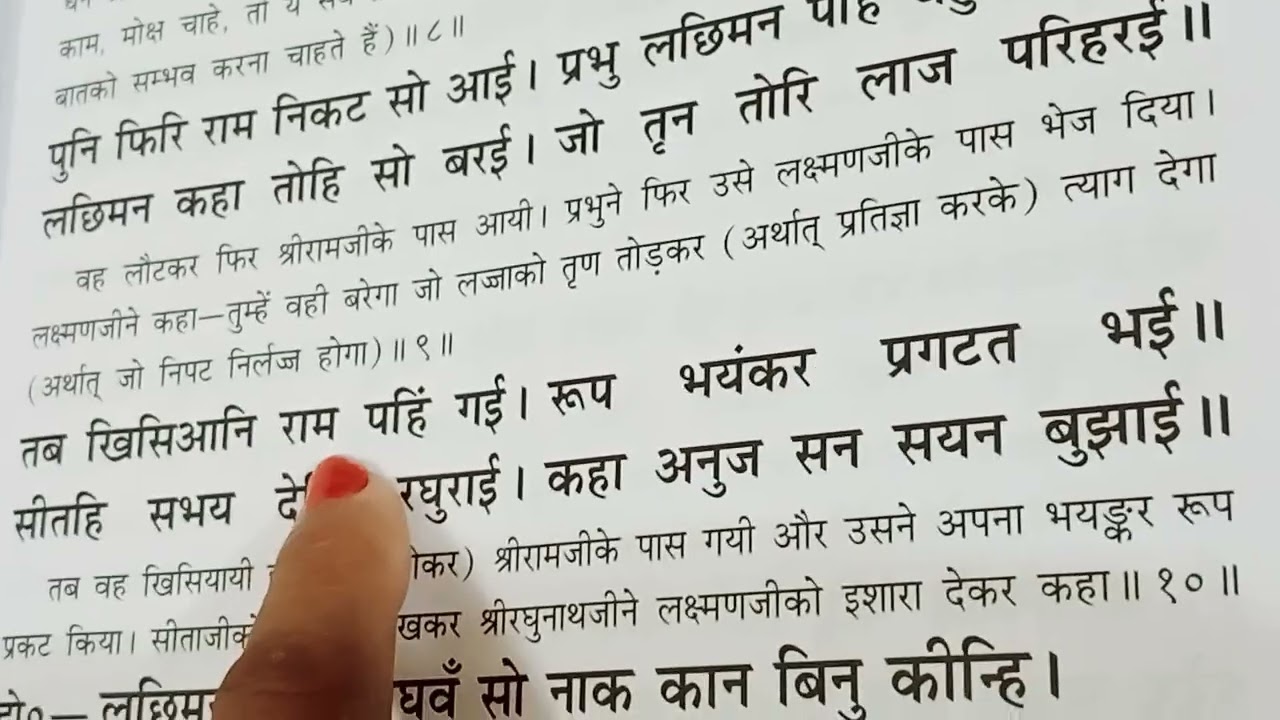 काम, मोक्ष चाहे, तो ये
बातको सम्भव करना चाहते हैं)॥८॥
पुनि फिरि राम निकट सो आई। प्रभु लछिमन पहिं
लछिमन कहा तोहि सो बरई। जो तृन तोरि लाज परिहरई॥
वह लौटकर फिर श्रीरामजीके पास आयी। प्रभुने फिर उसे लक्ष्मणजीके पास भेज दिया।
लक्ष्मणजीने कहा—तुम्हें वही बरेगा जो लज्जाको तृण तोड़कर (अर्थात् प्रतिज्ञा करके) त्याग देगा
(अर्थात् जो निपट निर्लज्ज होगा)॥९॥
तब खिसिआनि राम पहिं गई। रूप भयंकर प्रगटत भई॥
सीतहि सभय रघुराई। कहा अनुज सन सयन बुझाई॥
तब वह खिसियायी श्रीरामजीके पास गयी और उसने अपना भयङ्कर रूप
प्रकट किया। श्रीरघुनाथजीने लक्ष्मणजीको इशारा देकर कहा॥१०॥
सो नाक कान बिनु कीन्हि।